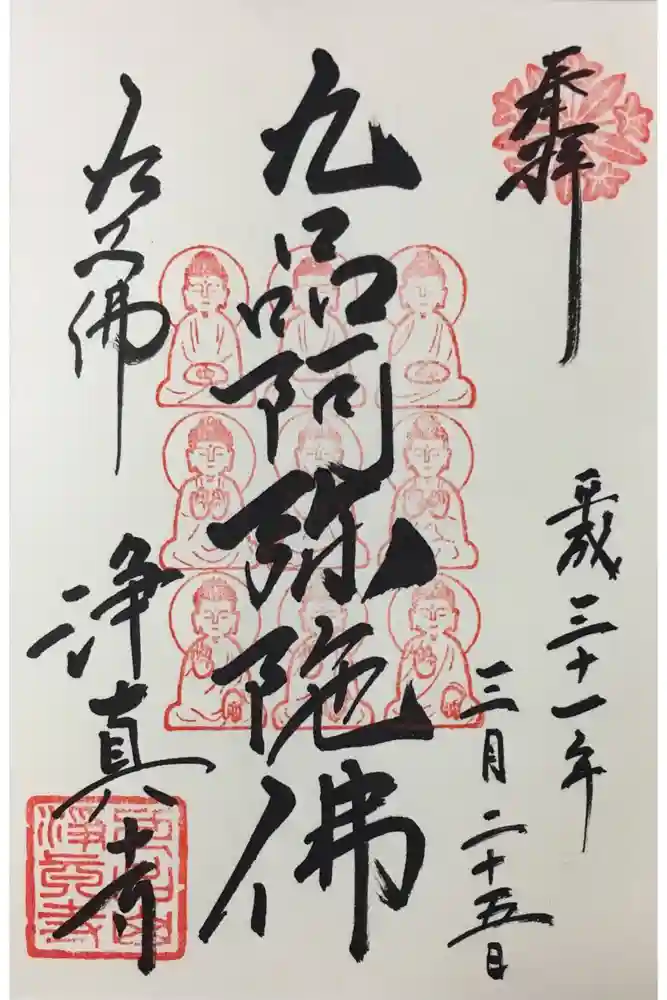 奉拝
平成三十一年
三月二十五日
九品阿弥陀佛
九品佛
浄真寺